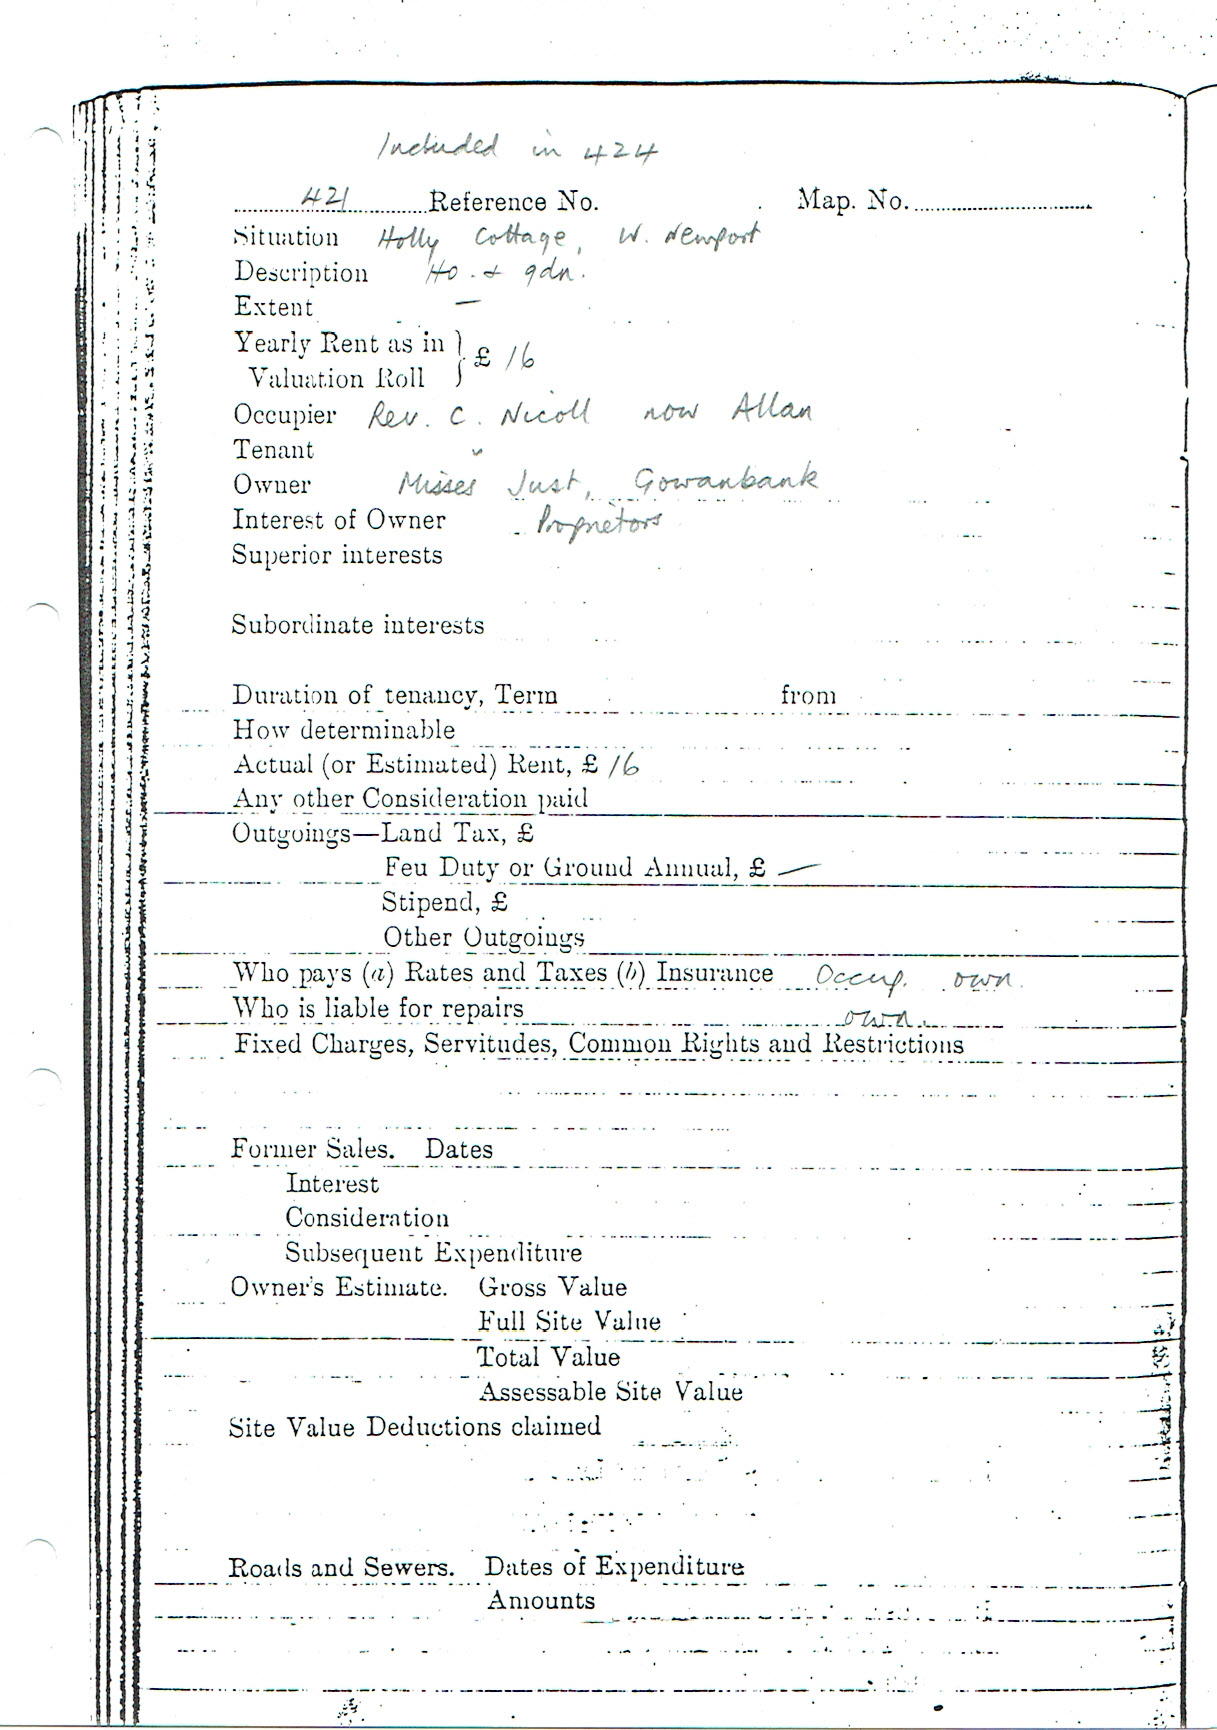 Included in 424
421 Reference No. Map. No.
Situation Holly Cottage, W. Newport
Description Ho. & gdn.
Extent —
Yearly Rent as in
Valuation Roll } £ 16
Occupier Rev. C. Nicoll now Allan
Tenant "
Owner Misses Just, Gowanbank
Interest of Owner Proprietors
Superior interests
Subordinate interests
Duration of tenancy, Term from
How determinable
Actual (or Estimated) Rent, £ 16
Any other Consideration paid
Outgoings—Land Tax, £
Feu Duty or Ground Annual, £ —
Stipend, £
Other Outgoings
Who pays (a) Rates and Taxes (b) Insurance Occup. own.
Who is liable for repairs own.
Fixed Charges, Servitudes, Common Rights and Restrictions
Former Sales. Dates
Interest
Consideration
Subsequent Expenditure
Owner's Estimate. Gross Value
Full Site Value
Total Value
Assessable Site Value
Site Value Deductions claimed
Roads and Sewers. Dates of Expenditure
Amounts